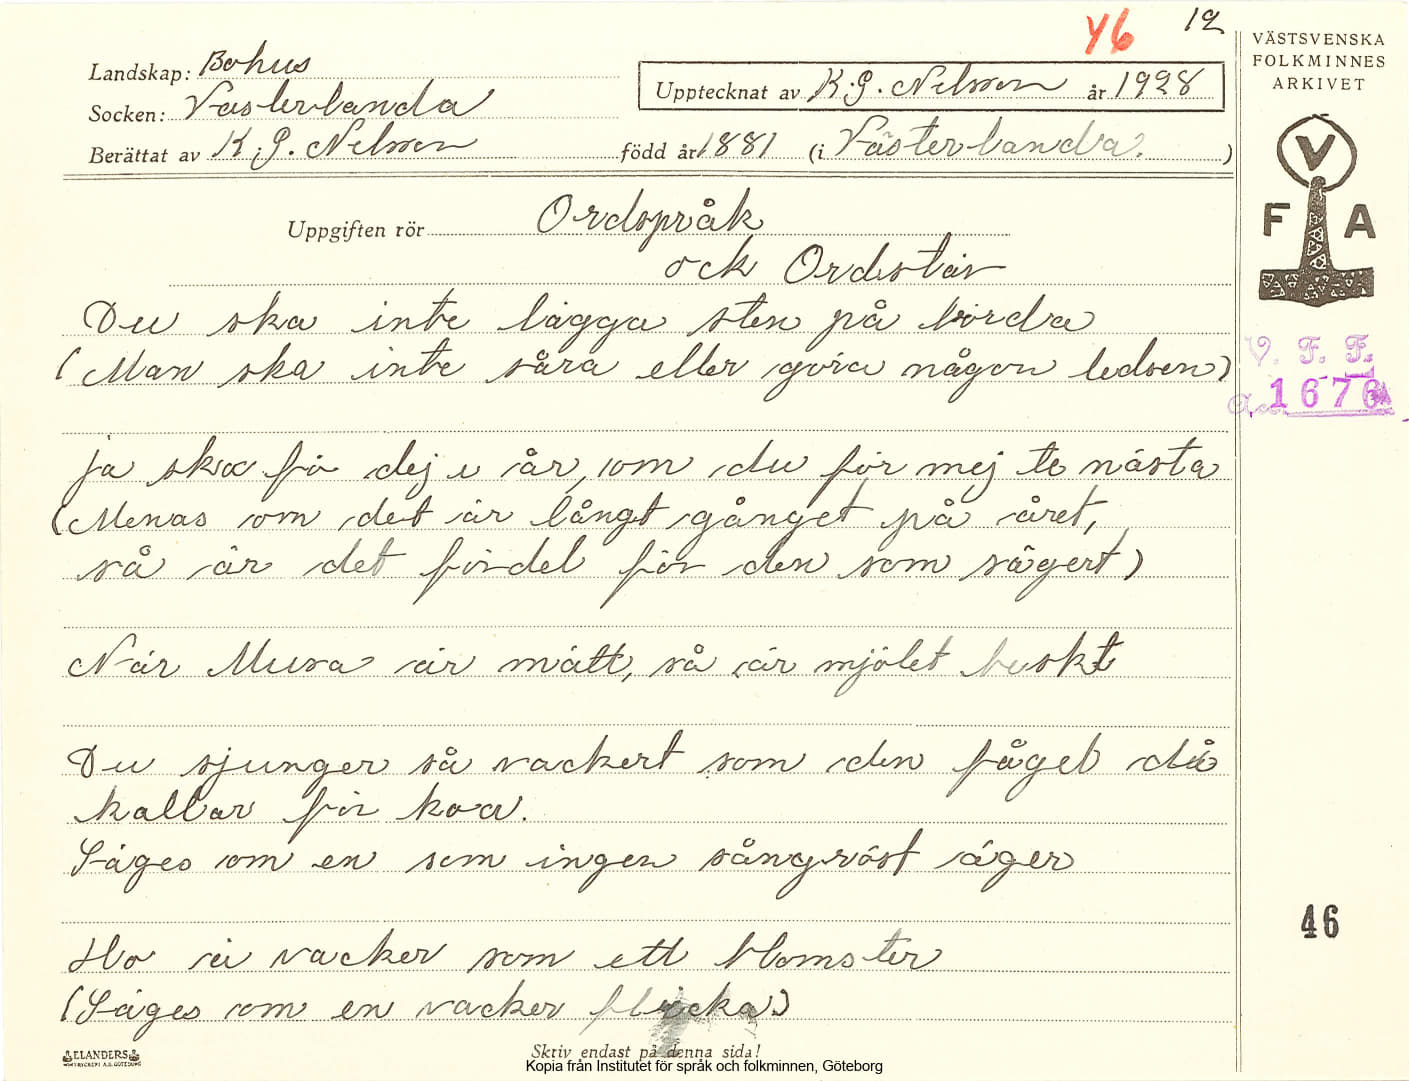 Y6 12
Landskap: Bohus
Socken: Västerlanda
Berättat av K. G. Nelsson
Upptecknat av K. G. Nelsson år 1928
född år 1881 (i Västerlanda. )
VÄSTSVENSKA
FOLKMINNES
ARKIVET
V
F A
Uppgiften rör Ordspråk
ock Ordstäv
Du ska inte lägga sten på börda
(Man ska inte såra eller göra någon ledsen)
V. F. F.
Acc. 1676
Ja ska få dej i år, om du får mej te nästa
(Menas om det är långt gånget på året,
så är det fördel för den som säger t)
När Musa är mätt, så är mjölet beskt
Du sjunger så vackert som den fågel då
kallar för koa.
Säges om en som ingen sångröst äger
46
Ho ä vacker som ett blomster
(Säges om en vacker flicka.)
ELANDERS
Skriv endast på denna sida!
Kopia från Institutet för språk och folkminnen, Göteborg